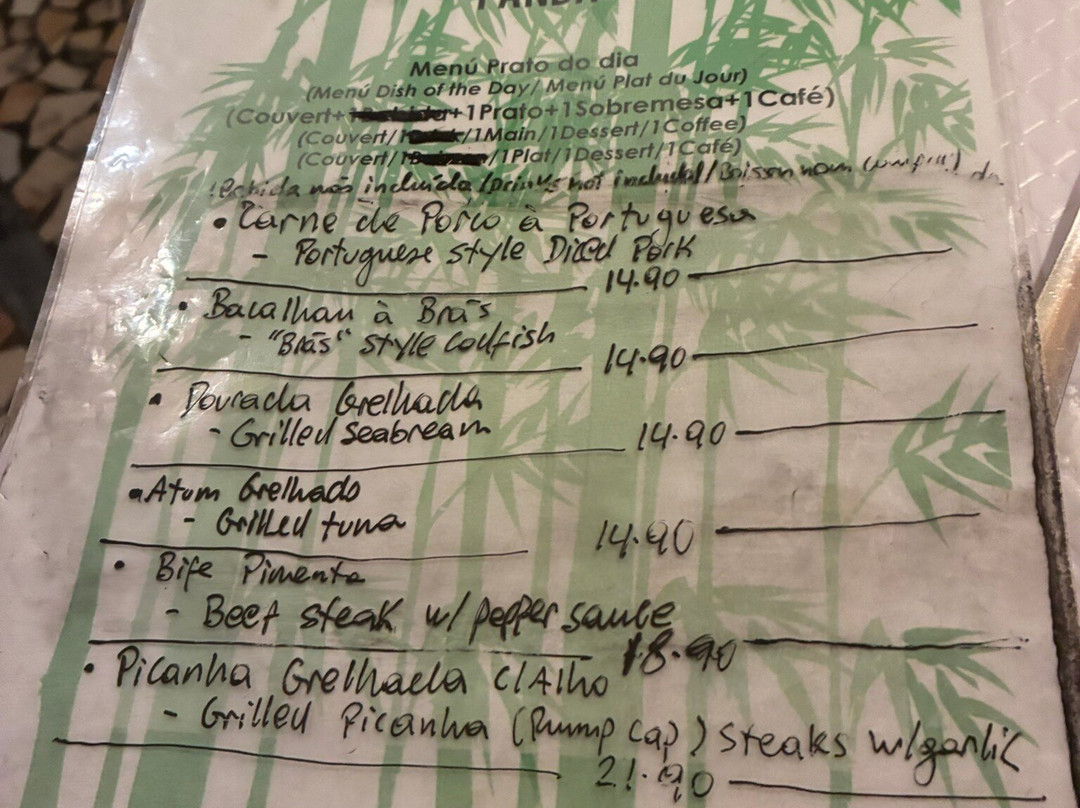 PANDA
Menú Prato do dia
(Menú Dish of the Day/ Menú Plat du Jour)
(Couvert+1 +1Prato+1Sobremesa+1Café)
(Couvert/1 /1Main/1Dessert/1Coffee)
(Couvert/1 /1Plat/1Dessert/1Café)
not included/Boisson
• Carne de Porco à Portuguesa
- Portuguese style Diced Pork
14.90
• Bacalhau à Brás
- "Brás" style codfish
14.90
• Dourada Grelhada
- Grilled seabream
14.90
• Atum Grelhado
- Grilled tuna
14.90
• Bife Pimenta
- Beef steak w/ pepper sauce
18.90
• Picanha Grelhada c/Alho
- Grilled Picanha (Rump cap) steaks w/garlic
21.90